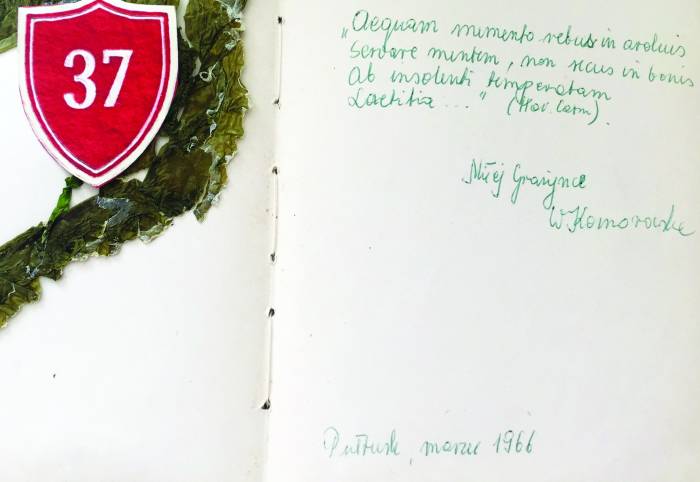 37
„Aequam memento rebus in arduis
servare mentem, non secus in bonis
Ab insolenti temperatam
Laetitia ..." (Hor. Carm).
Miłej Grażynce
W Komorowska
Pułtusk, marzec 1966